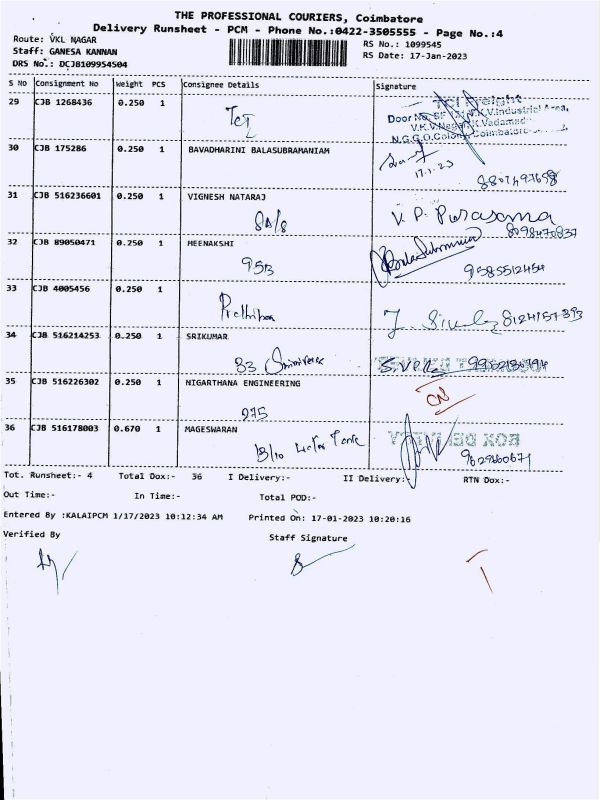 THE PROFESSIONAL COURIERS, Coimbatore
Delivery Runsheet - PCM - Phone No.:0422-3505555 - Page No.:4
Route: VKL NAGAR
RS No.: 1099545
Staff: GANESA KANNAN
RS Date: 17-Jan-2023
DRS No.: DCJB109954504
S No Consignment No Weight PCS Consignee Details Signature
29 CJB 1268436 0.250 1
TCI
TCI Freight
Door No. SF
V.K.V.Industrial Area,
N.G.G.O.Colony, Coimbatore
30 CJB 175286 0.250 1 BAVADHARINI BALASUBRAMANIAM
17.1.23
31 CJB 516236601 0.250 1 VIGNESH NATARAJ
8A/8
V. P.
32 CJB 89050471 0.250 1 MEENAKSHI
95B
9585512454
33 CJB 4005456 0.250 1
8124157393
34 CJB 516214253 0.250 1 SRIKUMAR
83
35 CJB 516226302 0.250 1 NIGARTHANA ENGINEERING
975
CN
36 CJB 516178003 0.670 1 MAGESWARAN
13/10 Water Tank
BOX DELIVERY
9629660671
Tot. Runsheet:- 4 Total Dox:- 36 I Delivery:- II Delivery:- RTN Dox:-
Out Time:- In Time:- Total POD:-
Entered By :KALAIPCM 1/17/2023 10:12:34 AM Printed On: 17-01-2023 10:20:16
Verified By Staff Signature